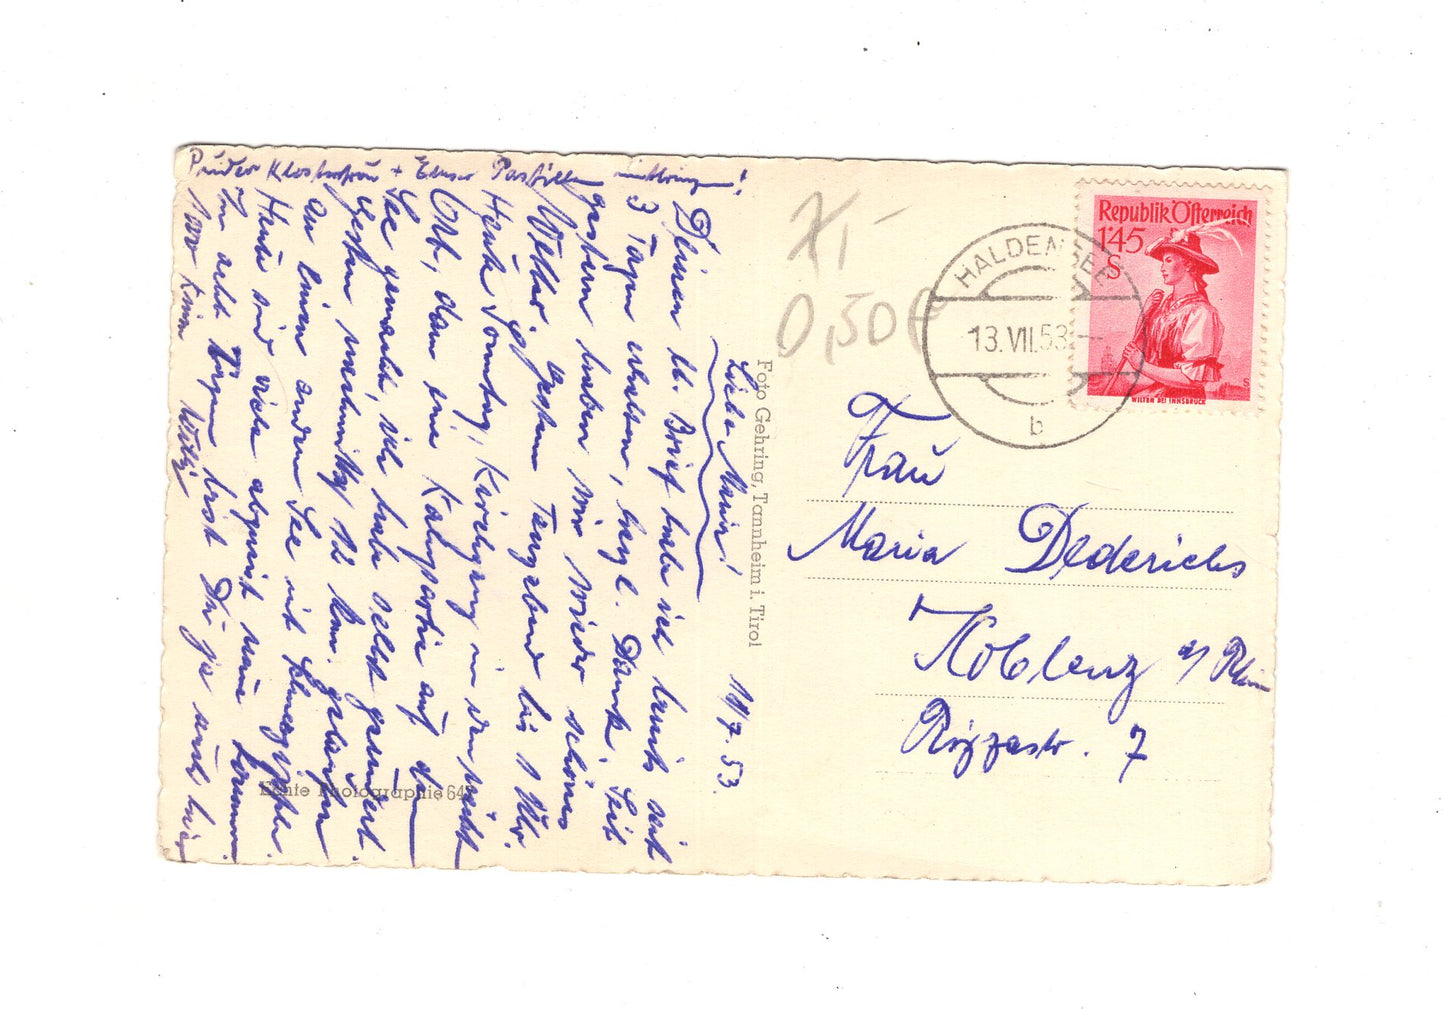 Puder Klosterfrau + Emser Pastillen mitbringen!
11/7.53.
Liebe Maria!
Deinen lb. Brief habe ich bereits seit
3 Tagen erhalten, herzl. Dank. Seit
gestern haben wir wieder schönes
Wetter, gestern Tanzabend bis 1 Uhr.
Heute Sonntag, Kirchgang in den nächsten
Ort, dann eine Kahnpartie auf dem
See gemacht, ich habe selbst gerudert.
Gestern nachmittag 12 km gelaufen
an einen anderen See mit
Heute sind viele abgereist neue kommen.
In acht Tagen bist Du ja auch hier
Foto Gehring, Tannheim i. Tirol
Echte Photographie 647
X,-
0,50
HALDENSEE
13.VII.53
b
Republik Österreich
1'45
S
WILTEN BEI INNSBRUCK
Frau
Maria Dederichs
Koblenz a/ Rhein
Rizzastr. 7